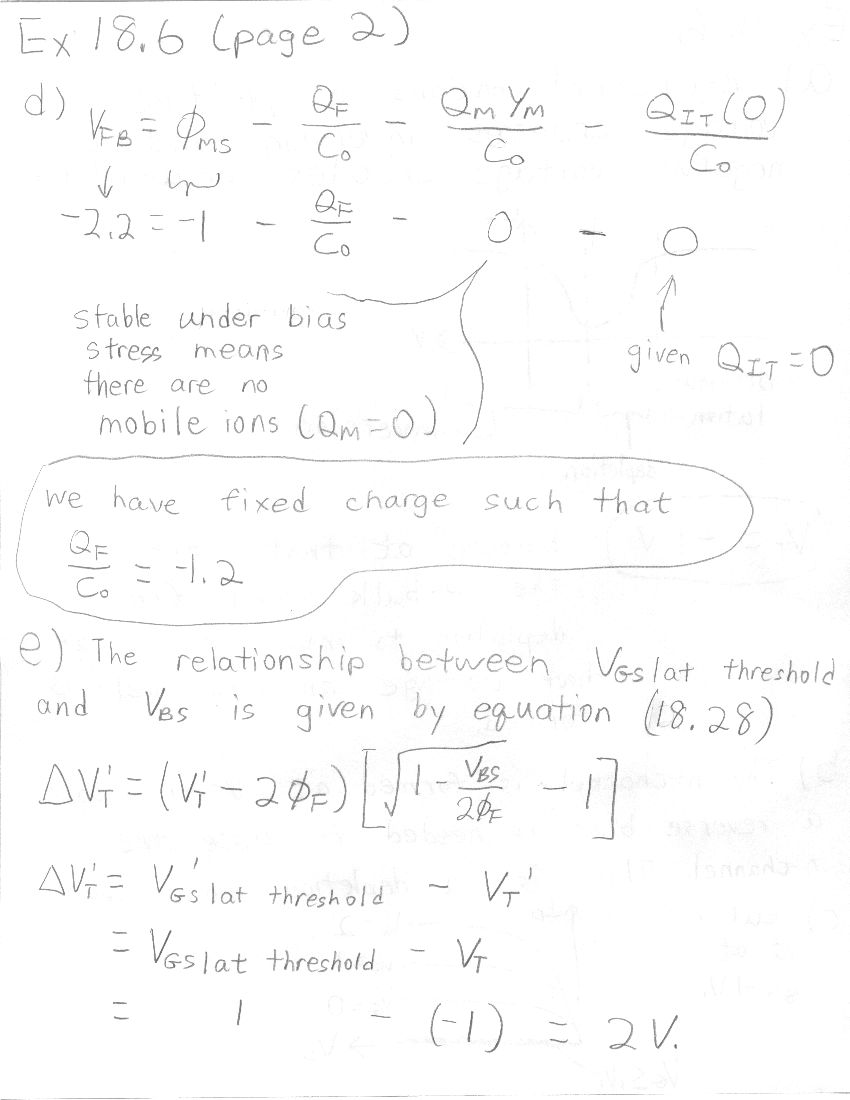 Ex 18.6 (page 2)
d) V_FB = φ_MS − Q_F/C_o − Q_M Y_M/C_o − Q_IT(0)/C_o
−2.2 = −1 − Q_F/C_o − 0 − 0
stable under bias
stress means
there are no
mobile ions (Q_M = 0)
given Q_IT = 0
we have fixed charge such that
Q_F/C_o = −1.2
e) The relationship between V_GS|at threshold
and V_BS is given by equation (18.28)
ΔV_T' = (V_T' − 2φ_F) [√(1 − V_BS/2φ_F) − 1]
ΔV_T' = V_GS'|at threshold − V_T'
= V_GS|at threshold − V_T
= 1 − (−1) = 2 V.